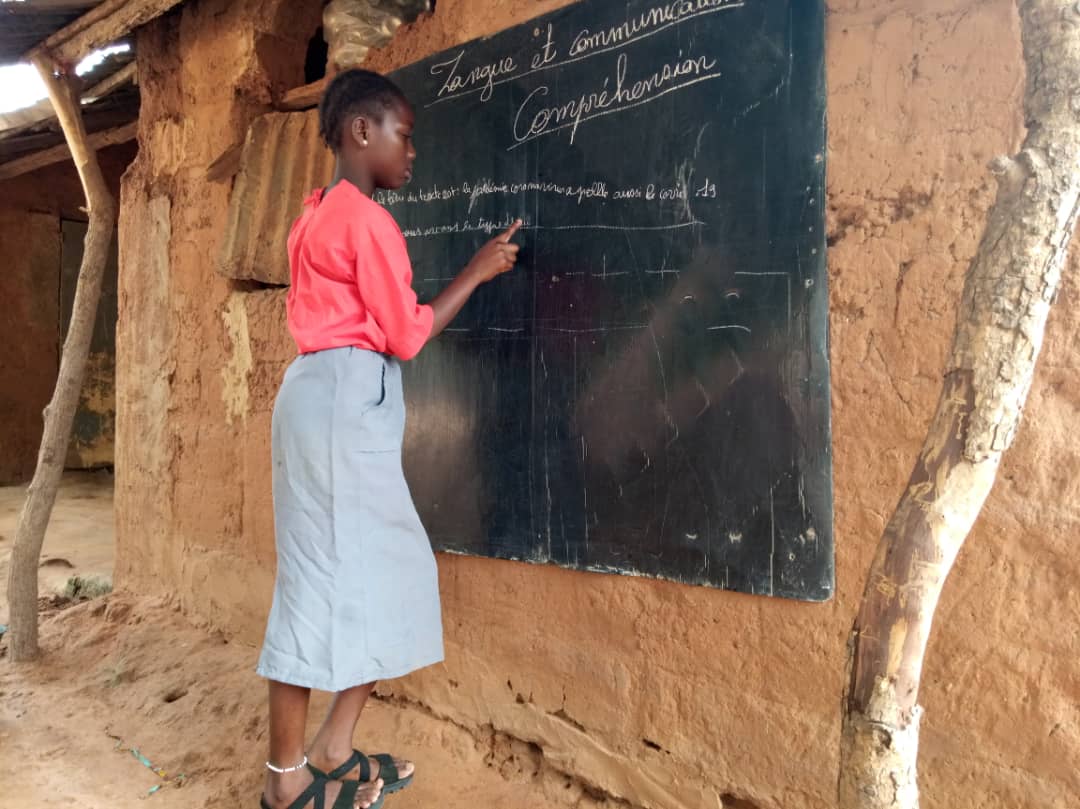 Langue et communication
Compréhension
le titre du texte est : la pandémie coronavirus appellé aussi le covid 19
nous avons le type